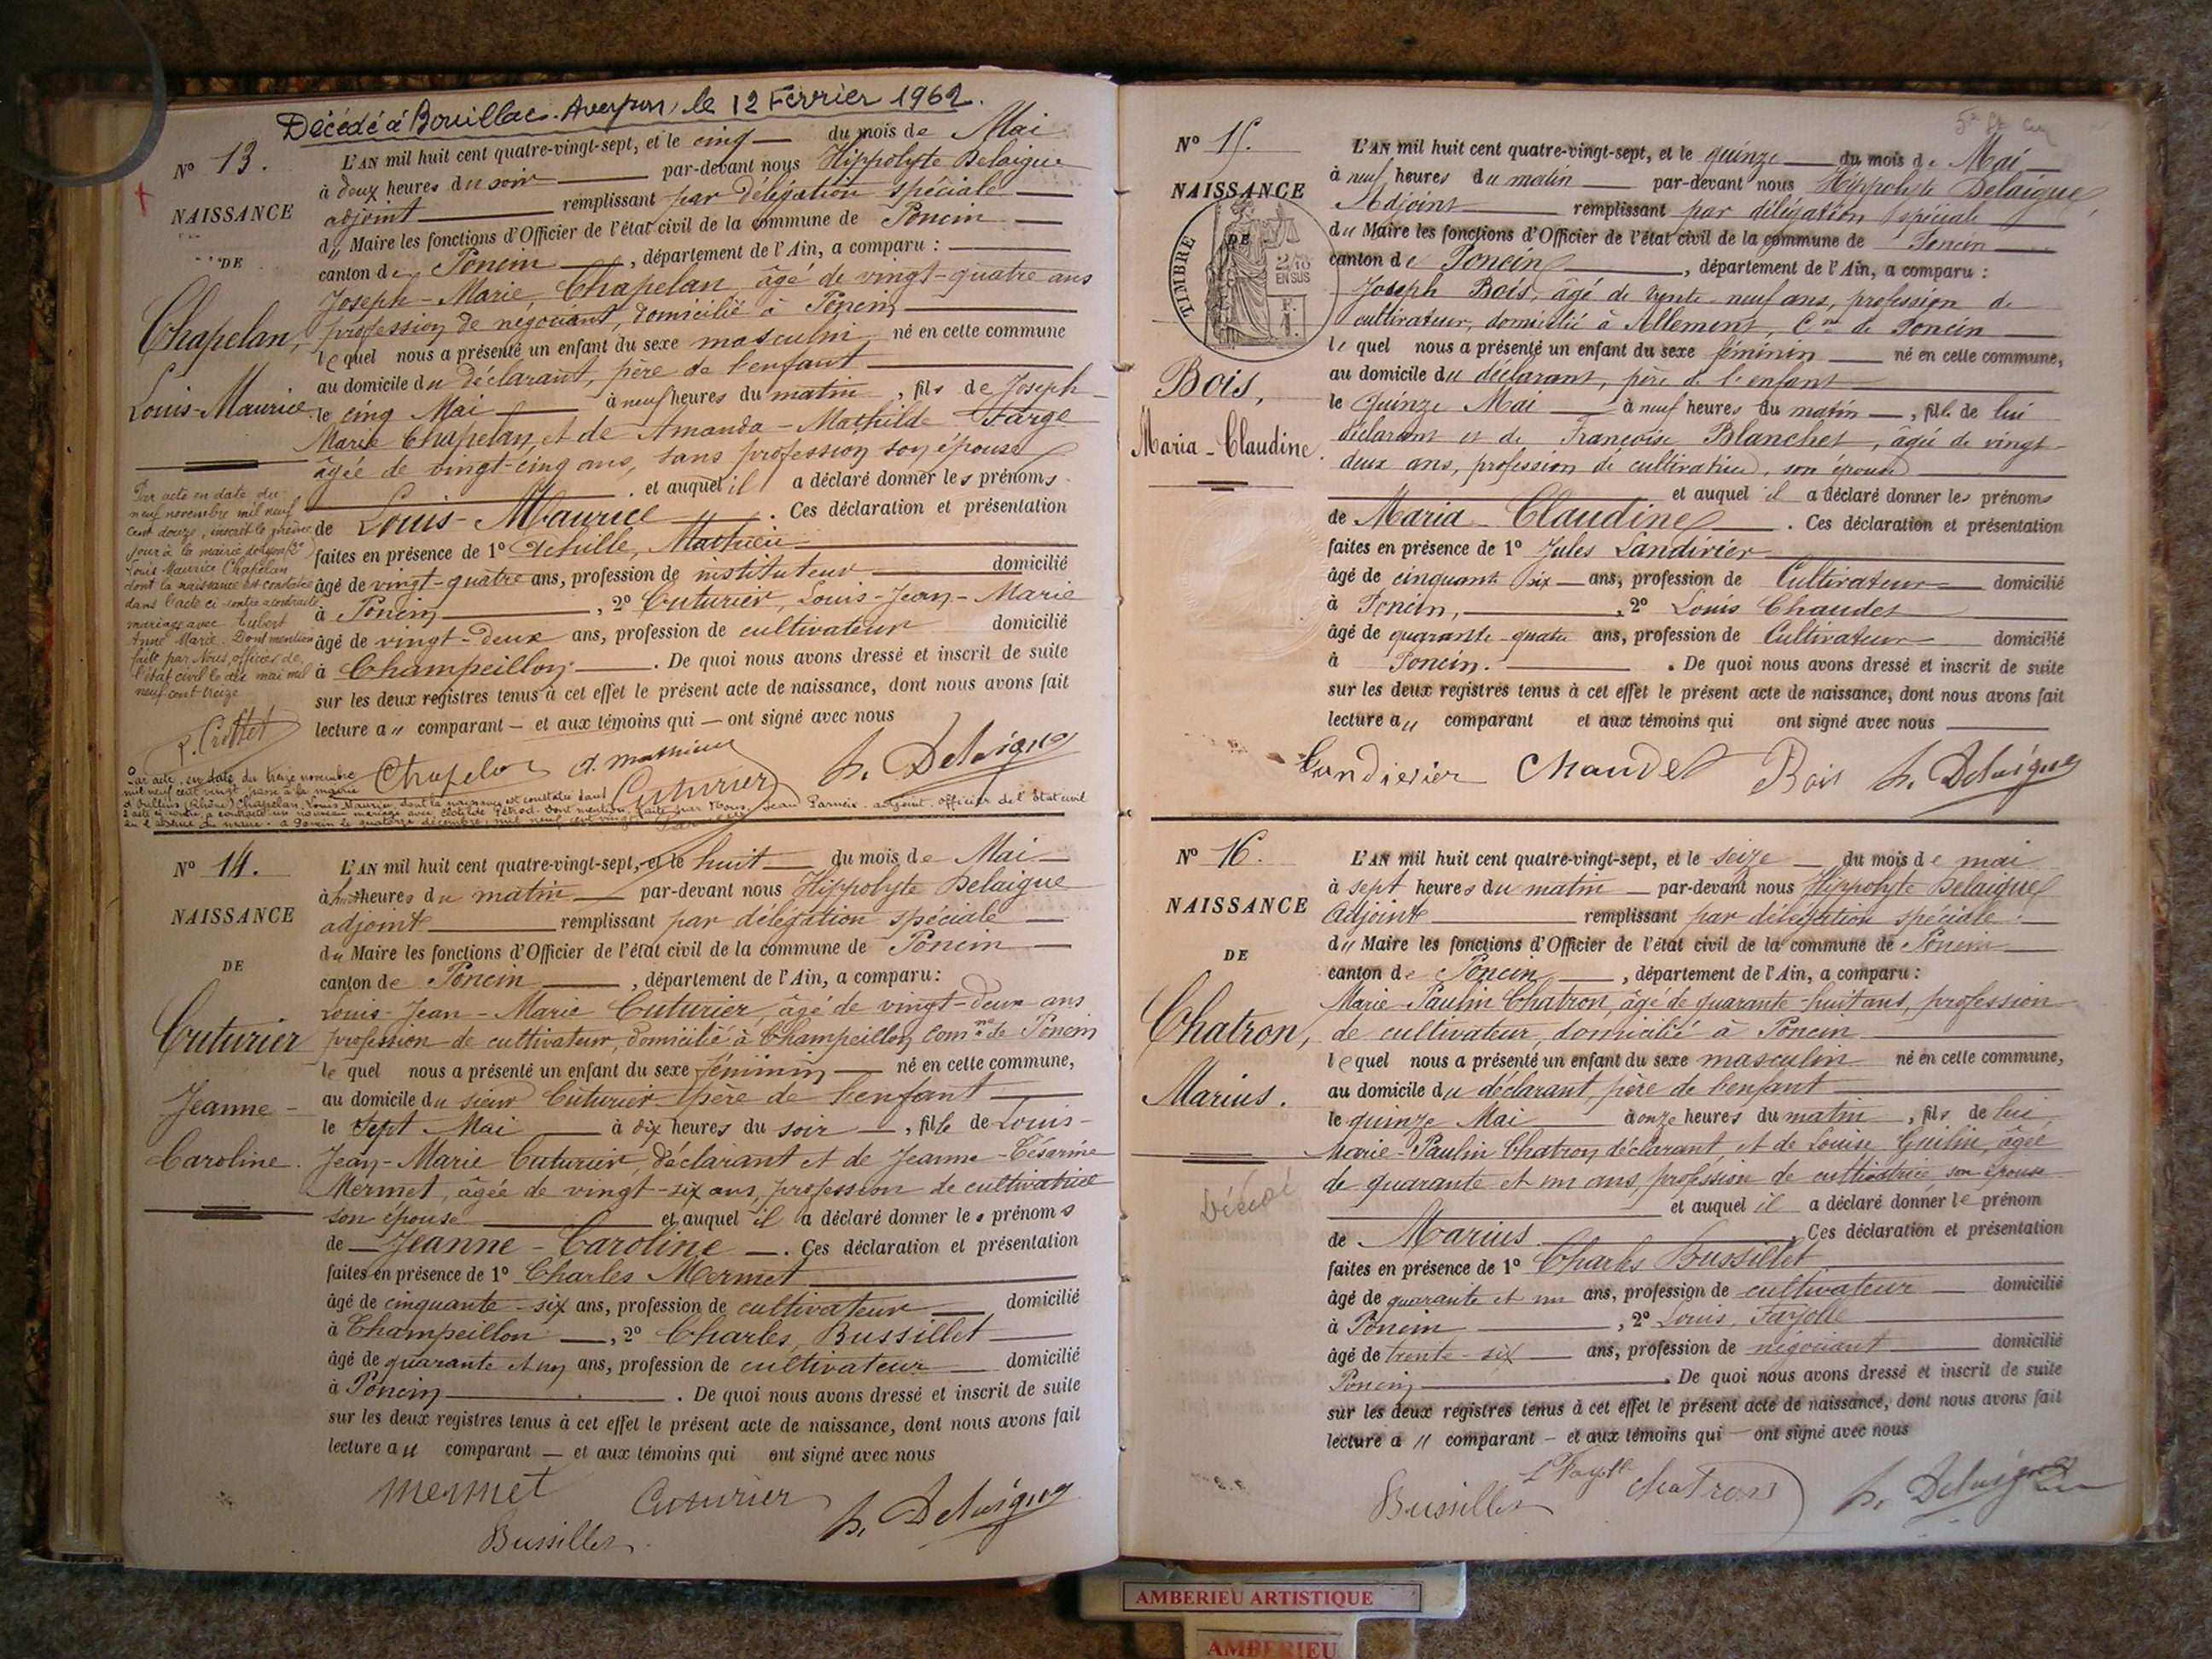 Décédé à Bouillac. Aveyron, le 12 Février 1962.
N° 13.
NAISSANCE
DE
Chapelan,
Louis-Maurice.
L'AN mil huit cent quatre-vingt-sept, et le cinq du mois de Mai
à deux heures du soir par-devant nous Hippolyte Delaigue
adjoint remplissant par délégation spéciale
du Maire les fonctions d'Officier de l'état civil de la commune de Poncin
canton de Poncin, département de l'Ain, a comparu :
Joseph-Marie Chapelan, âgé de vingt-quatre ans
profession de négociant, domicilié à Poncin
lequel nous a présenté un enfant du sexe masculin né en cette commune
au domicile du déclarant, père de l'enfant
le cinq Mai à neuf heures du matin, fils de Joseph-
Marie Chapelan, et de Amanda-Mathilde Farge
âgée de vingt-cinq ans, sans profession son épouse
. et auquel il a déclaré donner les prénoms
de Louis-Maurice. Ces déclaration et présentation
faites en présence de 1° Achille, Mathieu
âgé de vingt-quatre ans, profession de instituteur domicilié
à Poncin, 2° Cuturier, Louis-Jean-Marie
âgé de vingt-deux ans, profession de cultivateur domicilié
à Champeillon. De quoi nous avons dressé et inscrit de suite
sur les deux registres tenus à cet effet le présent acte de naissance, dont nous avons fait
lecture au comparant — et aux témoins qui — ont signé avec nous
Par acte en date du
neuf novembre mil neuf
cent douze, inscrit le même
jour à la mairie de Lyon
Louis Maurice Chapelan
dont la naissance est constatée
dans l'acte ci-contre a contracté
mariage avec Hubert
Anne Marie. Dont mention
faite par Nous, officier de
l'état civil le dix mai mil
neuf cent treize
Chapelan A. Mathieu
Cuturier h. Delaigue
Par acte, en date du treize novembre
mil neuf cent vingt, passé à la mairie
d'Oullins (Rhône) Chapelan, Louis Maurice, dont la naissance est constatée dans
l'acte ci-contre, a contracté un nouveau mariage avec Clotilde Pétrod. Dont mention faite par Nous, Jean adjoint, officier de l'État civil
en l'absence du maire. à Poncin le quatorze décembre, mil neuf cent vingt
N° 14.
NAISSANCE
DE
Cuturier
Jeanne-
Caroline.
L'AN mil huit cent quatre-vingt-sept, et le huit du mois de Mai
à huit heures du matin par-devant nous Hippolyte Delaigue
adjoint remplissant par délégation spéciale
du Maire les fonctions d'Officier de l'état civil de la commune de Poncin
canton de Poncin, département de l'Ain, a comparu:
Louis-Jean-Marie Cuturier, âgé de vingt-deux ans
profession de cultivateur, domicilié à Champeillon, com.ne de Poncin
lequel nous a présenté un enfant du sexe féminin né en cette commune,
au domicile du sieur Cuturier père de l'enfant
le Sept Mai à dix heures du soir, fille de Louis-
Jean-Marie Cuturier, déclarant et de Jeanne-Césarine
Mermet, âgée de vingt-six ans, profession de cultivatrice
son épouse et auquel il a déclaré donner les prénoms
de Jeanne-Caroline. Ces déclaration et présentation
faites en présence de 1° Charles Mermet
âgé de cinquante-six ans, profession de cultivateur domicilié
à Champeillon, 2° Charles, Bussillet
âgé de quarante et un ans, profession de cultivateur domicilié
à Poncin. De quoi nous avons dressé et inscrit de suite
sur les deux registres tenus à cet effet le présent acte de naissance, dont nous avons fait
lecture au comparant — et aux témoins qui ont signé avec nous
Mermet Cuturier h. Delaigue
Bussillet
N° 15.
NAISSANCE
DE
TIMBRE
2/10
EN SUS
Bois,
Maria-Claudine.
L'AN mil huit cent quatre-vingt-sept, et le quinze du mois de Mai
à neuf heures du matin par-devant nous Hippolyte Delaigue,
Adjoint remplissant par délégation spéciale
du Maire les fonctions d'Officier de l'état civil de la commune de Poncin
canton de Poncin, département de l'Ain, a comparu :
Joseph Bois, âgé de trente-neuf ans, profession de
cultivateur, domicilié à Allement, Cne de Poncin
lequel nous a présenté un enfant du sexe féminin né en cette commune,
au domicile du déclarant, père de l'enfant
le Quinze Mai à neuf heures du matin, fille de lui
déclarant et de Françoise Blanchet, âgée de vingt-
deux ans, profession de cultivatrice, son épouse
et auquel il a déclaré donner les prénoms
de Maria-Claudine. Ces déclaration et présentation
faites en présence de 1° Jules Landirier
âgé de cinquante six ans, profession de Cultivateur domicilié
à Poncin, 2° Louis Chaudet
âgé de quarante-quatre ans, profession de Cultivateur domicilié
à Poncin. De quoi nous avons dressé et inscrit de suite
sur les deux registres tenus à cet effet le présent acte de naissance, dont nous avons fait
lecture au comparant et aux témoins qui ont signé avec nous
Landirier Chaudet Bois h. Delaigue
N° 16.
NAISSANCE
DE
Chatron,
Marius.
Décédé
L'AN mil huit cent quatre-vingt-sept, et le seize du mois de mai
à sept heures du matin par-devant nous Hippolyte Delaigue
Adjoint remplissant par délégation spéciale
du Maire les fonctions d'Officier de l'état civil de la commune de Poncin
canton de Poncin, département de l'Ain, a comparu :
Marie-Paulin Chatron, âgé de quarante-huit ans, profession
de cultivateur, domicilié à Poncin
lequel nous a présenté un enfant du sexe masculin né en cette commune,
au domicile du déclarant, père de l'enfant
le quinze Mai à onze heures du matin, fils de lui
Marie-Paulin Chatron déclarant, et de Louise Guilin, âgée
de quarante et un ans, profession de cultivatrice, son épouse
et auquel il a déclaré donner le prénom
de Marius. Ces déclaration et présentation
faites en présence de 1° Charles Bussillet
âgé de quarante et un ans, profession de cultivateur domicilié
à Poncin, 2° Louis, Fayolle
âgé de trente-six ans, profession de négociant domicilié
Poncin. De quoi nous avons dressé et inscrit de suite
sur les deux registres tenus à cet effet le présent acte de naissance, dont nous avons fait
lecture au comparant — et aux témoins qui — ont signé avec nous
Bussillet L. Fayolle Chatron h. Delaigue
AMBERIEU ARTISTIQUE
AMBERIEU